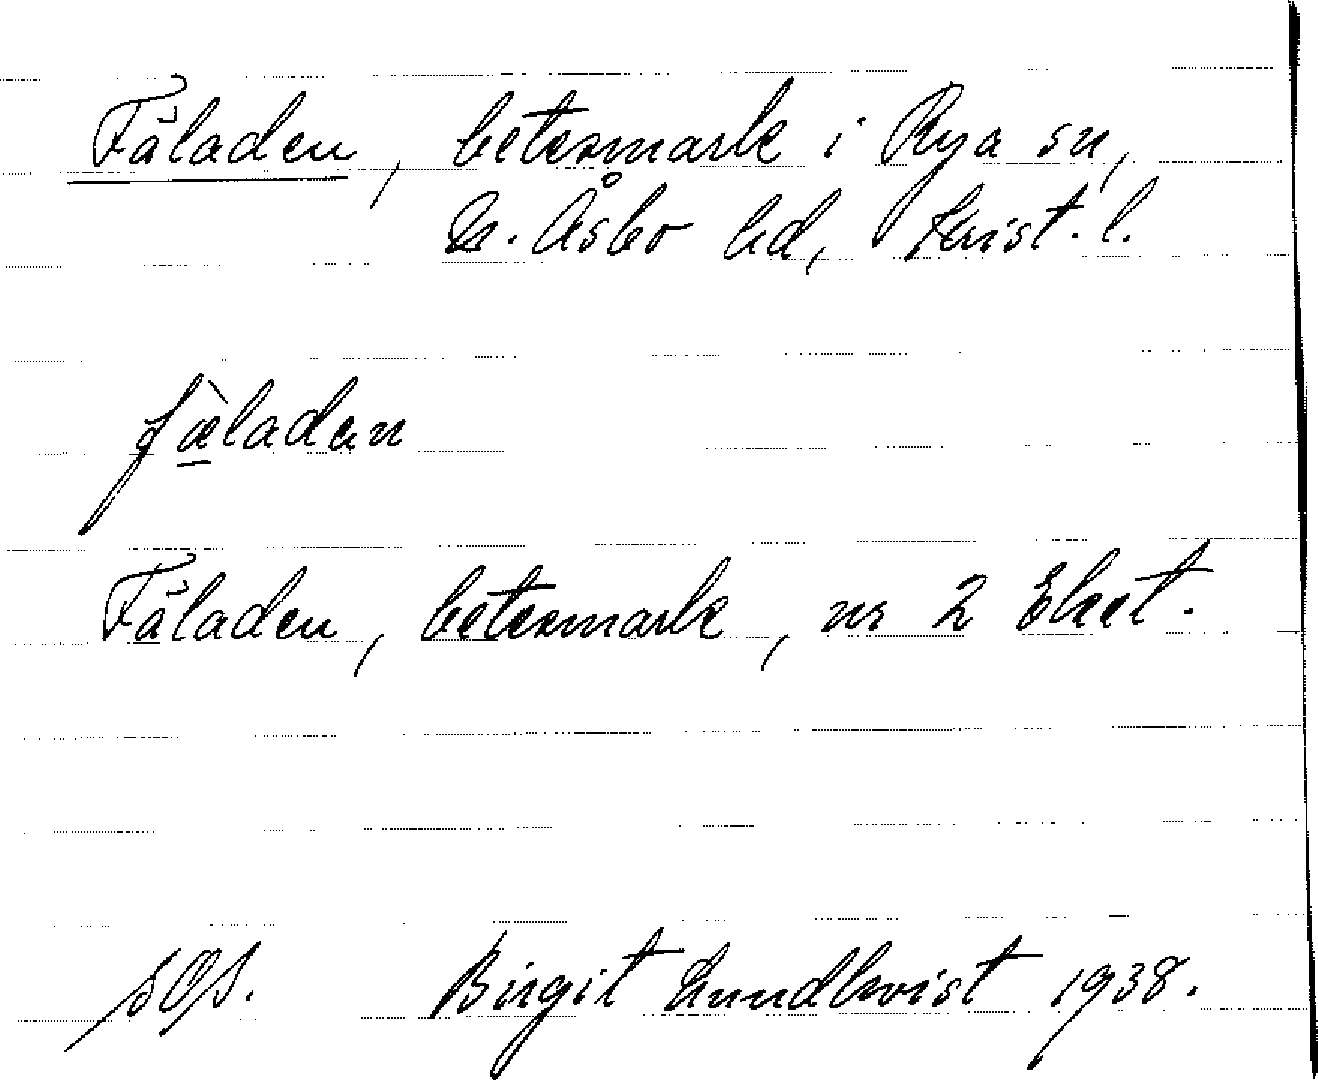 Fäladen, betesmark i Rya sn,
N. Åsbo hd, Krist. l.
fæ̀ladan
Fäladen, betesmark, nr 2 Eket.
SOS. Birgit Lundkvist 1938.